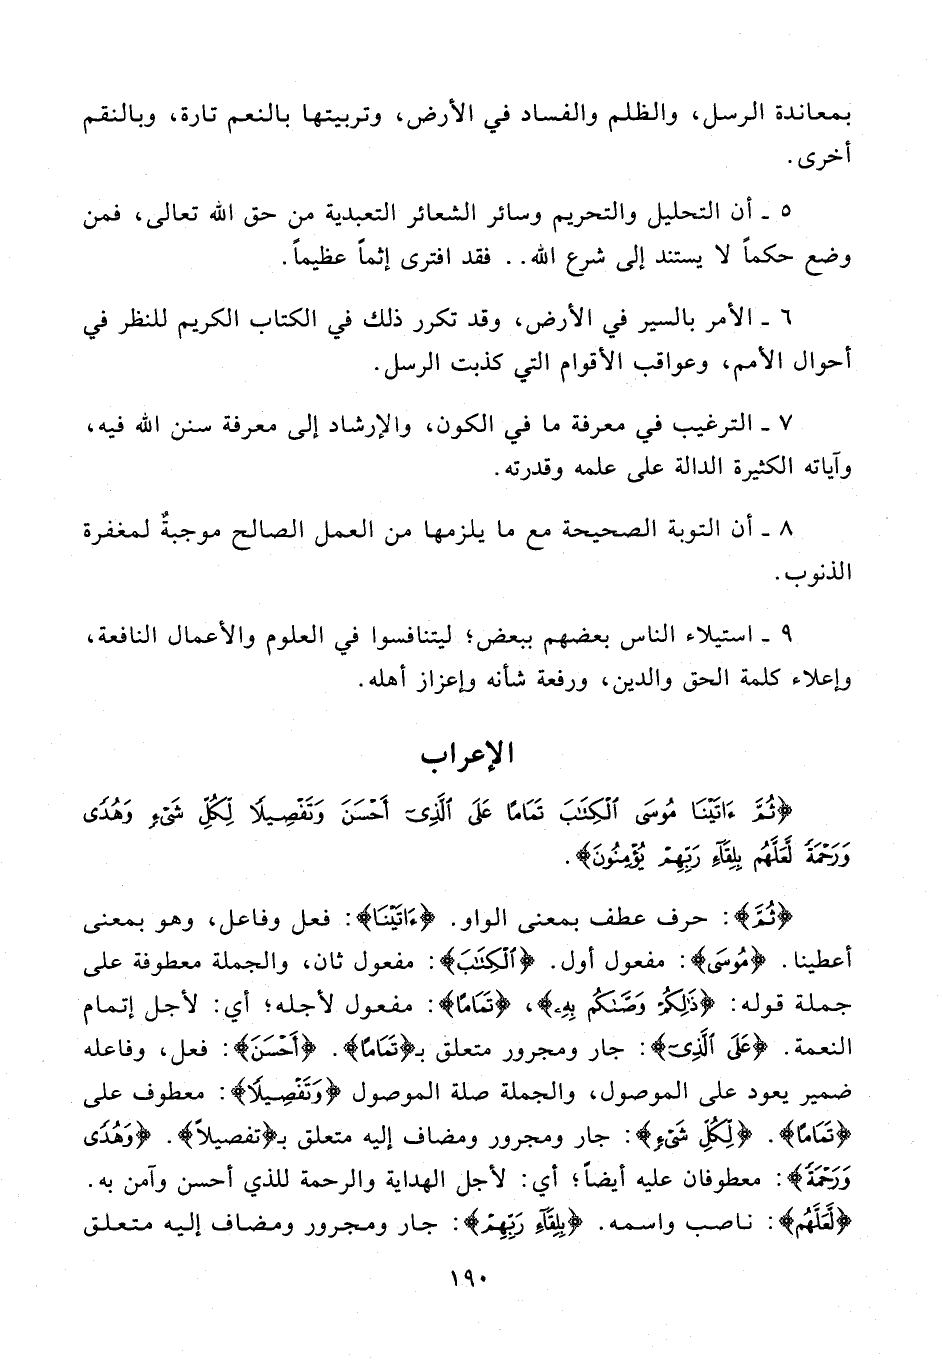 بمعاندة الرسل، والظلم والفساد في الأرض، وتربيتها بالنعم تارة، وبالنقم
أخرى.
٥ ـ أن التحليل والتحريم وسائر الشعائر التعبدية من حق الله تعالى، فمن
وضع حكماً لا يستند إلى شرع الله.. فقد افترى إثماً عظيماً.
٦ ـ الأمر بالسير في الأرض، وقد تكرر ذلك في الكتاب الكريم للنظر في
أحوال الأمم، وعواقب الأقوام التي كذبت الرسل.
٧ ـ الترغيب في معرفة ما في الكون، والإرشاد إلى معرفة سنن الله فيه،
وآياته الكثيرة الدالة على علمه وقدرته.
٨ ـ أن التوبة الصحيحة مع ما يلزمها من العمل الصالح موجبةٌ لمغفرة
الذنوب.
٩ ـ استيلاء الناس بعضهم ببعض؛ ليتنافسوا في العلوم والأعمال النافعة،
وإعلاء كلمة الحق والدين، ورفعة شأنه وإعزاز أهله.
الإعراب
﴿ثُمَّ ءَاتَيْنَا مُوسَى ٱلْكِتَٰبَ تَمَامًا عَلَى ٱلَّذِىٓ أَحْسَنَ وَتَفْصِيلًا لِّكُلِّ شَىْءٍ وَهُدًى
وَرَحْمَةً لَّعَلَّهُم بِلِقَآءِ رَبِّهِمْ يُؤْمِنُونَ﴾.
﴿ثُمَّ﴾: حرف عطف بمعنى الواو. ﴿ءَاتَيْنَا﴾: فعل وفاعل، وهو بمعنى
أعطينا. ﴿مُوسَى﴾: مفعول أول. ﴿ٱلْكِتَٰبَ﴾: مفعول ثان، والجملة معطوفة على
جملة قوله: ﴿ذَٰلِكُمْ وَصَّىٰكُم بِهِۦ﴾، ﴿تَمَامًا﴾: مفعول لأجله؛ أي: لأجل إتمام
النعمة. ﴿عَلَى ٱلَّذِىٓ﴾: جار ومجرور متعلق بـ﴿تَمَامًا﴾. ﴿أَحْسَنَ﴾: فعل، وفاعله
ضمير يعود على الموصول، والجملة صلة الموصول ﴿وَتَفْصِيلًا﴾: معطوف على
﴿تَمَامًا﴾. ﴿لِّكُلِّ شَىْءٍ﴾: جار ومجرور ومضاف إليه متعلق بـ﴿تفصيلاً﴾. ﴿وَهُدًى
وَرَحْمَةً﴾: معطوفان عليه أيضاً؛ أي: لأجل الهداية والرحمة للذي أحسن وآمن به.
﴿لَّعَلَّهُم﴾: ناصب واسمه. ﴿بِلِقَآءِ رَبِّهِمْ﴾: جار ومجرور ومضاف إليه متعلق
١٩٠